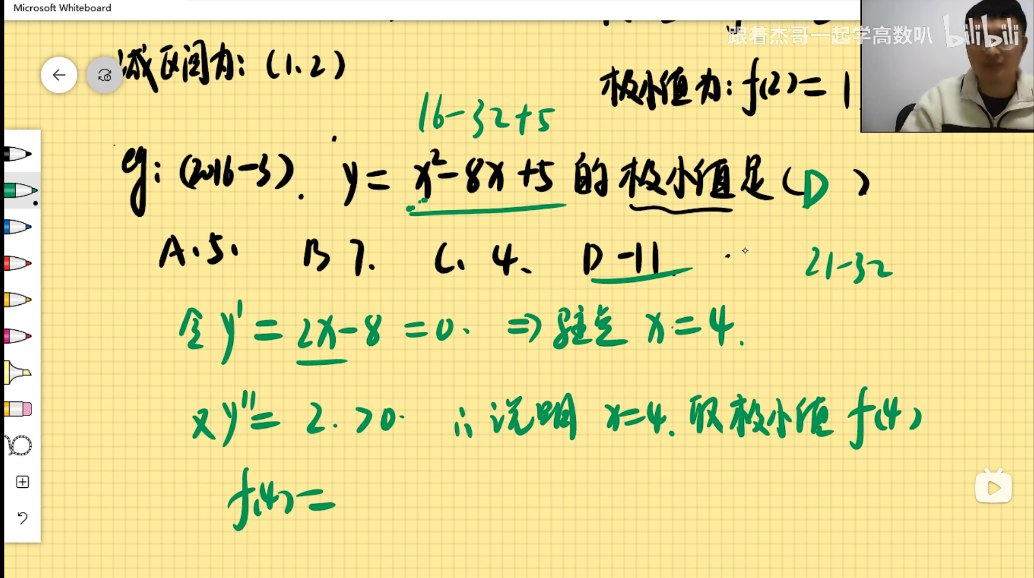 Microsoft Whiteboard
跟着杰哥一起学高数叭 bilibili
减区间为: (1,2)
极小值为: f(2) = 1
16-32+5
eg: (2016-3). y = x²-8x+5 的极小值是 ( D )
A. 5. B 7. C. 4. D -11
21-32
令 y' = 2x-8 = 0. ⇒ 驻点 x = 4.
又 y'' = 2. >0. ∴ 说明 x=4. 取极小值 f(4)
f(4) =